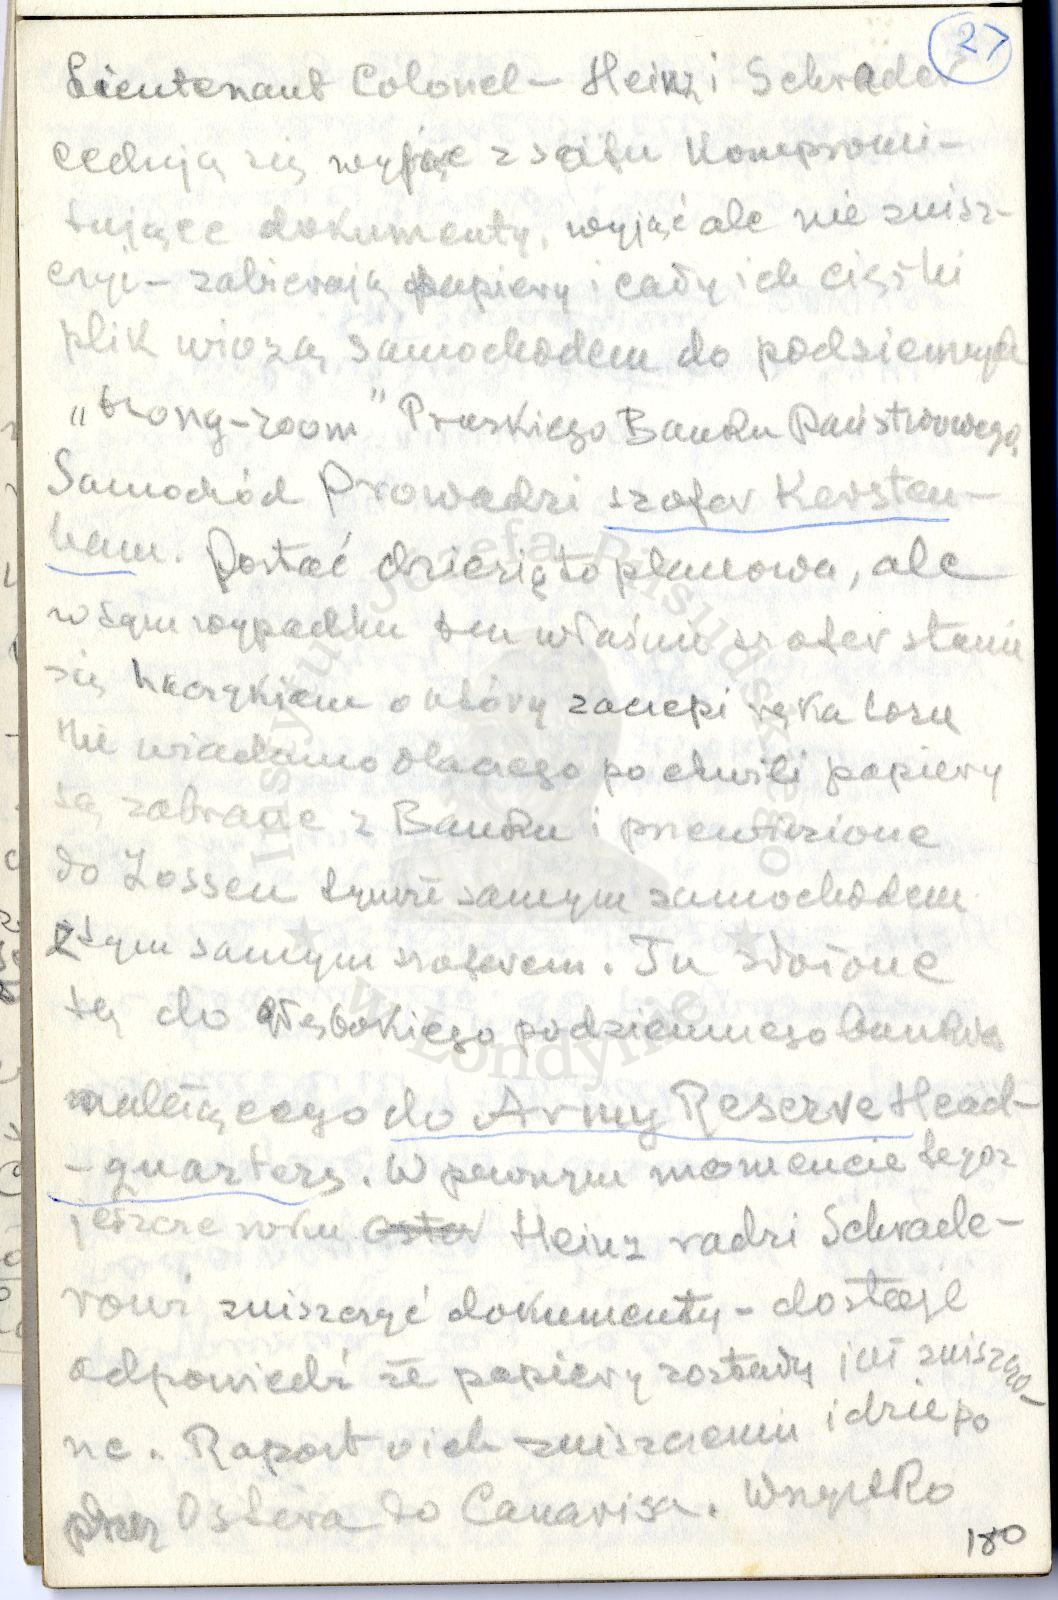 27
Lieutenant Colonel – Heinz i Schrader
cedują się wyjąć z seifu kompromi-
tujące dokumenty, wyjąć ale nie znisz-
czyć – zabierają papiery i cały ich ciężki
plik wiozą samochodem do podziemnych
„strong-room" Pruskiego Banku Państwowego,
Samochód Prowadzi szofer Kersten-
han. Postać dziesiętoplanowa, ale
w tym wypadku ten właśnie szofer stanie
się haczykiem o który zaczepi ręka losu
Nie wiadomo dlaczego po chwili papiery
są zabrane z Banku i przewiezione
do Zossen tymże samym samochodem
z tym samym szoferem. Tu złożone
są do głębokiego podziemnego bunkra
należącego do Army Reserve Head-
-quarters. W pewnym momencie tegoż
jeszcze roku Heinz radzi Schrade-
rowi zniszczyć dokumenty – dostaje
odpowiedź że papiery zostały już zniszczo-
ne. Raport o ich zniszczeniu idzie po
przez Ostera do Canarisa. Wszystko
180
Instytut Józefa Piłsudskiego
w Londynie